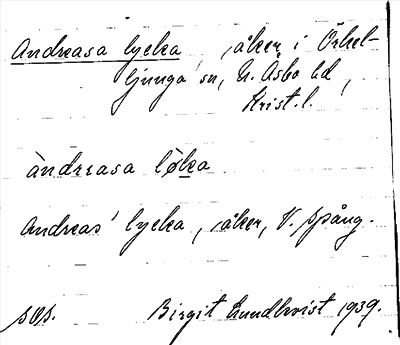 Andreasa lycka, åker i Örkel-
ljunga sn, N. Åsbo hd,
Krist. l.
àndrɛasa løka
Andreas' lycka, åker, V. Spång.
Birgit Lundkvist 1939.